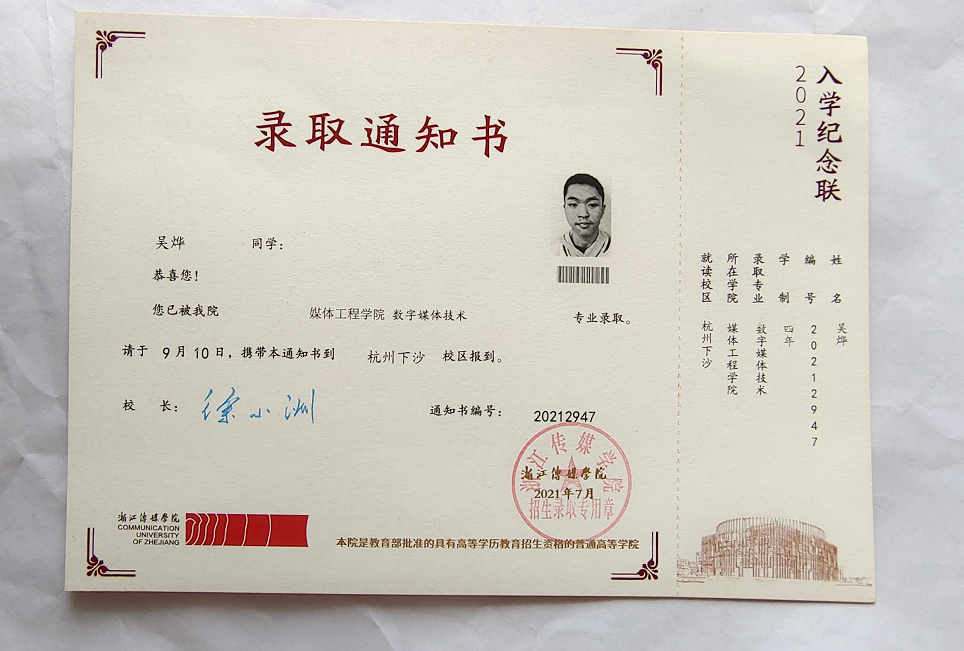 录取通知书
吴烨 同学：
恭喜您！
您已被我院 媒体工程学院 数字媒体技术 专业录取。
请于 9月10日，携带本通知书到 杭州下沙 校区报到。
校 长： 徐小洲
通知书编号： 20212947
浙江传媒学院
浙江传媒学院
2021年7月
招生录取专用章
浙江传媒学院
COMMUNICATION
UNIVERSITY
OF ZHEJIANG
本院是教育部批准的具有高等学历教育招生资格的普通高等学院
入学纪念联
2021
姓 名 吴烨
编 号 20212947
学 制 四年
录取专业 数字媒体技术
所在学院 媒体工程学院
就读校区 杭州下沙